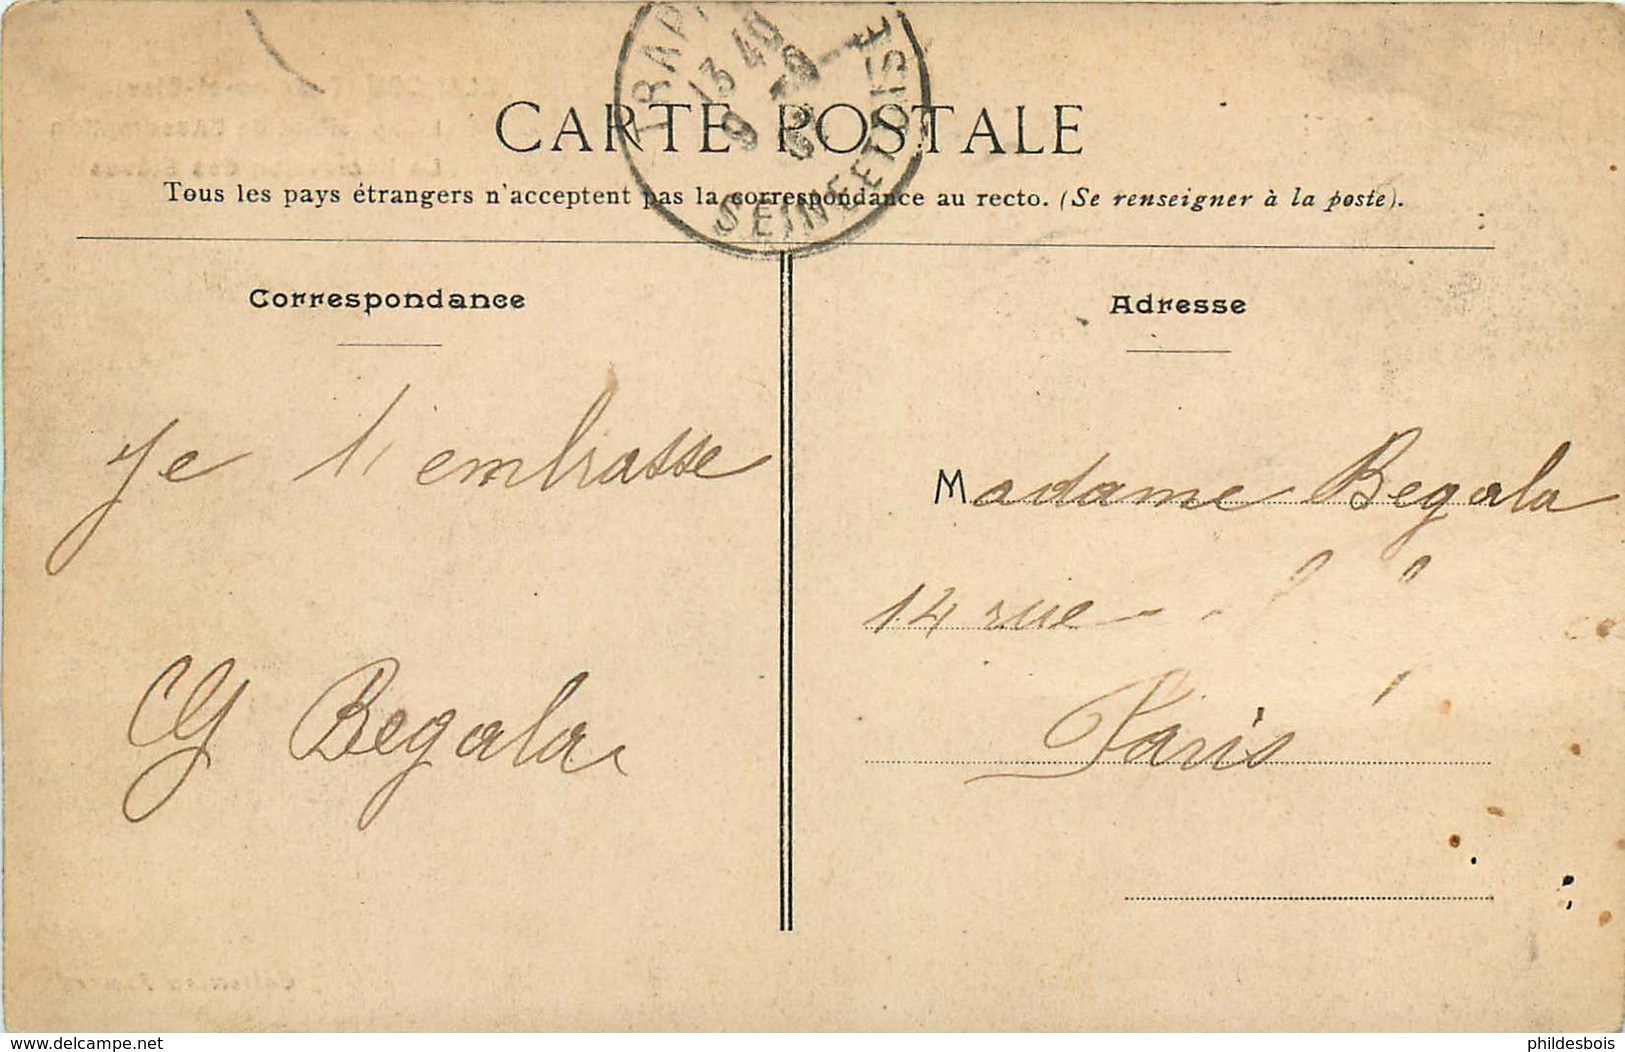 CARTE POSTALE
Tous les pays étrangers n'acceptent pas la correspondance au recto. (Se renseigner à la poste).
13 40
9
SEINE ET OISE
Correspondance
Je t'embrasse
Begala
Adresse
Madame Begala
14 rue
Paris
www.delcampe.net
phildesbois